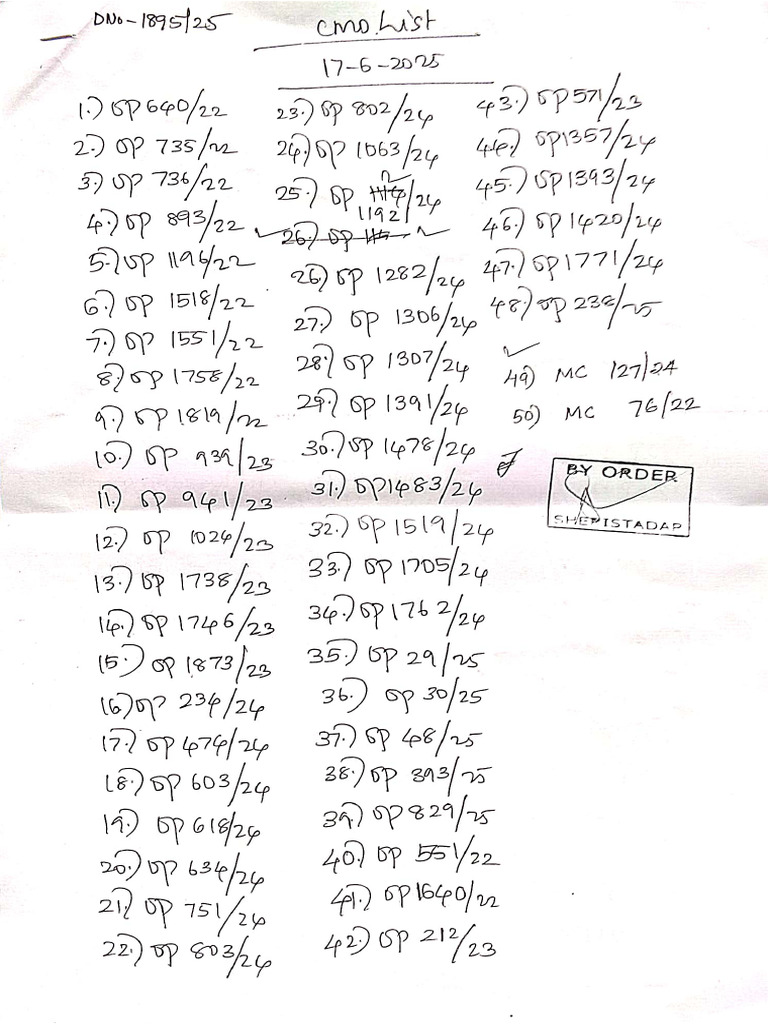 DNo-1895/25
CMO.List
17-6-2025
1.) OP 640/22
2.) OP 735/22
3.) OP 736/22
4.) OP 893/22
5.) OP 1196/22
6.) OP 1518/22
7.) OP 1551/22
8.) OP 1758/22
9.) OP 1819/22
10.) OP 939/23
11.) OP 941/23
12.) OP 1024/23
13.) OP 1738/23
14.) OP 1746/23
15.) OP 1873/23
16.) OP 234/24
17.) OP 474/24
18.) OP 603/24
19.) OP 618/24
20.) OP 634/24
21.) OP 751/24
22.) OP 803/24
23.) OP 802/24
24.) OP 1063/24
25.) OP 1192/24
26.) OP
26.) OP 1282/24
27.) OP 1306/24
28.) OP 1307/24
29.) OP 1391/24
30.) OP 1478/24
31.) OP 1483/24
32.) OP 1519/24
33.) OP 1705/24
34.) OP 1762/24
35.) OP 29/25
36.) OP 30/25
37.) OP 48/25
38.) OP 393/25
39.) OP 829/25
40.) OP 551/22
41.) OP 1640/22
42.) OP 212/23
43.) OP 571/23
44.) OP 1357/24
45.) OP 1393/24
46.) OP 1420/24
47.) OP 1771/24
48.) OP 238/25
49) MC 127/24
50) MC 76/22
BY ORDER
SHERISTADAR